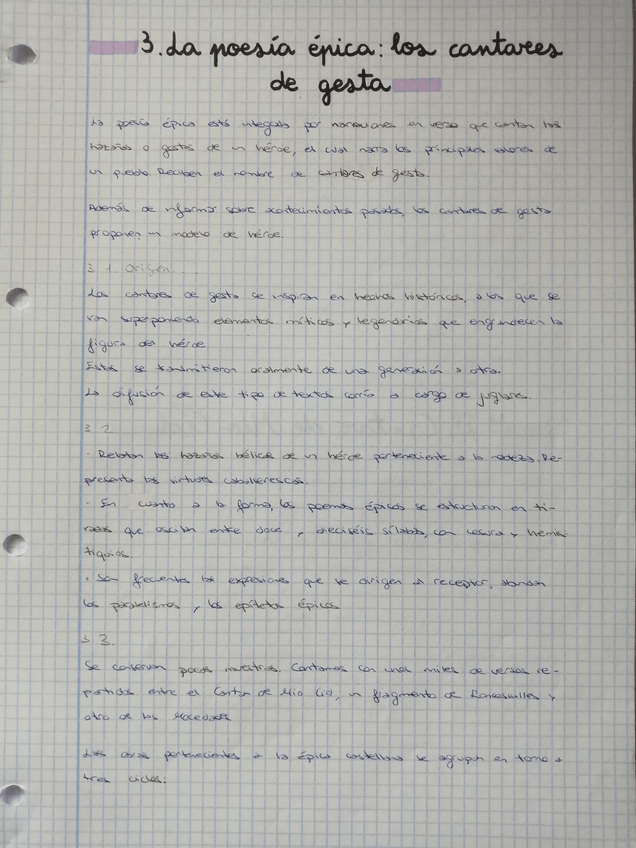 3. La poesía épica: los cantares
de gesta
La poesía épica está integrada por narraciones en verso que cantan las
hazañas o gestas de un héroe, el cual narra los principales valores de
un pueblo. Reciben el nombre de cantares de gesta.
Además de informar sobre acontecimientos pasados, los cantares de gesta
proponen un modelo de héroe.
3.1. Origen
Los cantares de gesta se inspiran en hechos históricos, a los que se
van superponiendo elementos míticos y legendarios que engrandecen la
figura del héroe
Estos se transmitieron oralmente de una generación a otra.
La difusión de este tipo de textos corría a cargo de juglares.
3.2
· Relatan las hazañas bélicas de un héroe perteneciente a la nobleza. Re-
presenta las virtudes caballerescas.
· En cuanto a la forma, los poemas épicos se estructuran en ti-
radas que oscilan entre doce y dieciséis sílabas, con cesura y hemis-
tiquios.
· Son frecuentes las expresiones que se dirigen al receptor, abundan
los paralelismos y los epítetos épicos
3.3.
Se conservan pocas muestras. Contamos con unos miles de versos re-
partidos entre el Cantar de Mio Cid, un fragmento de Roncesvalles y
otro de las Mocedades
Las obras pertenecientes a la épica castellana se agrupan en torno a
tres ciclos: